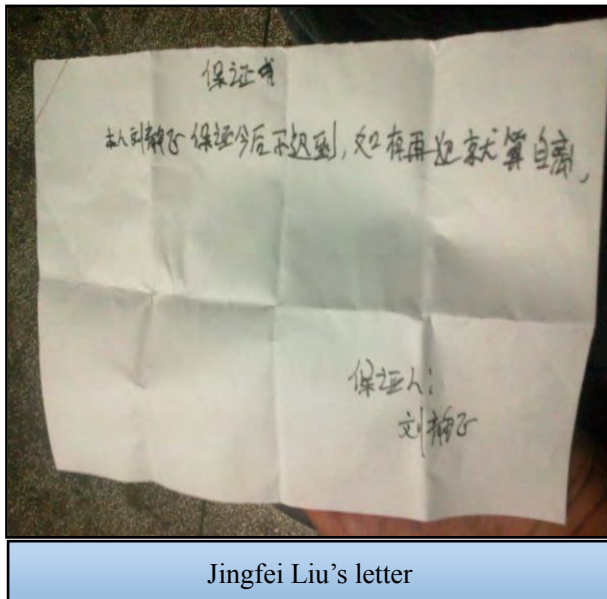 保证书
本人刘静飞保证今后不迟到,如有再迟就算自离,
保证人:
刘静飞
Jingfei Liu's letter